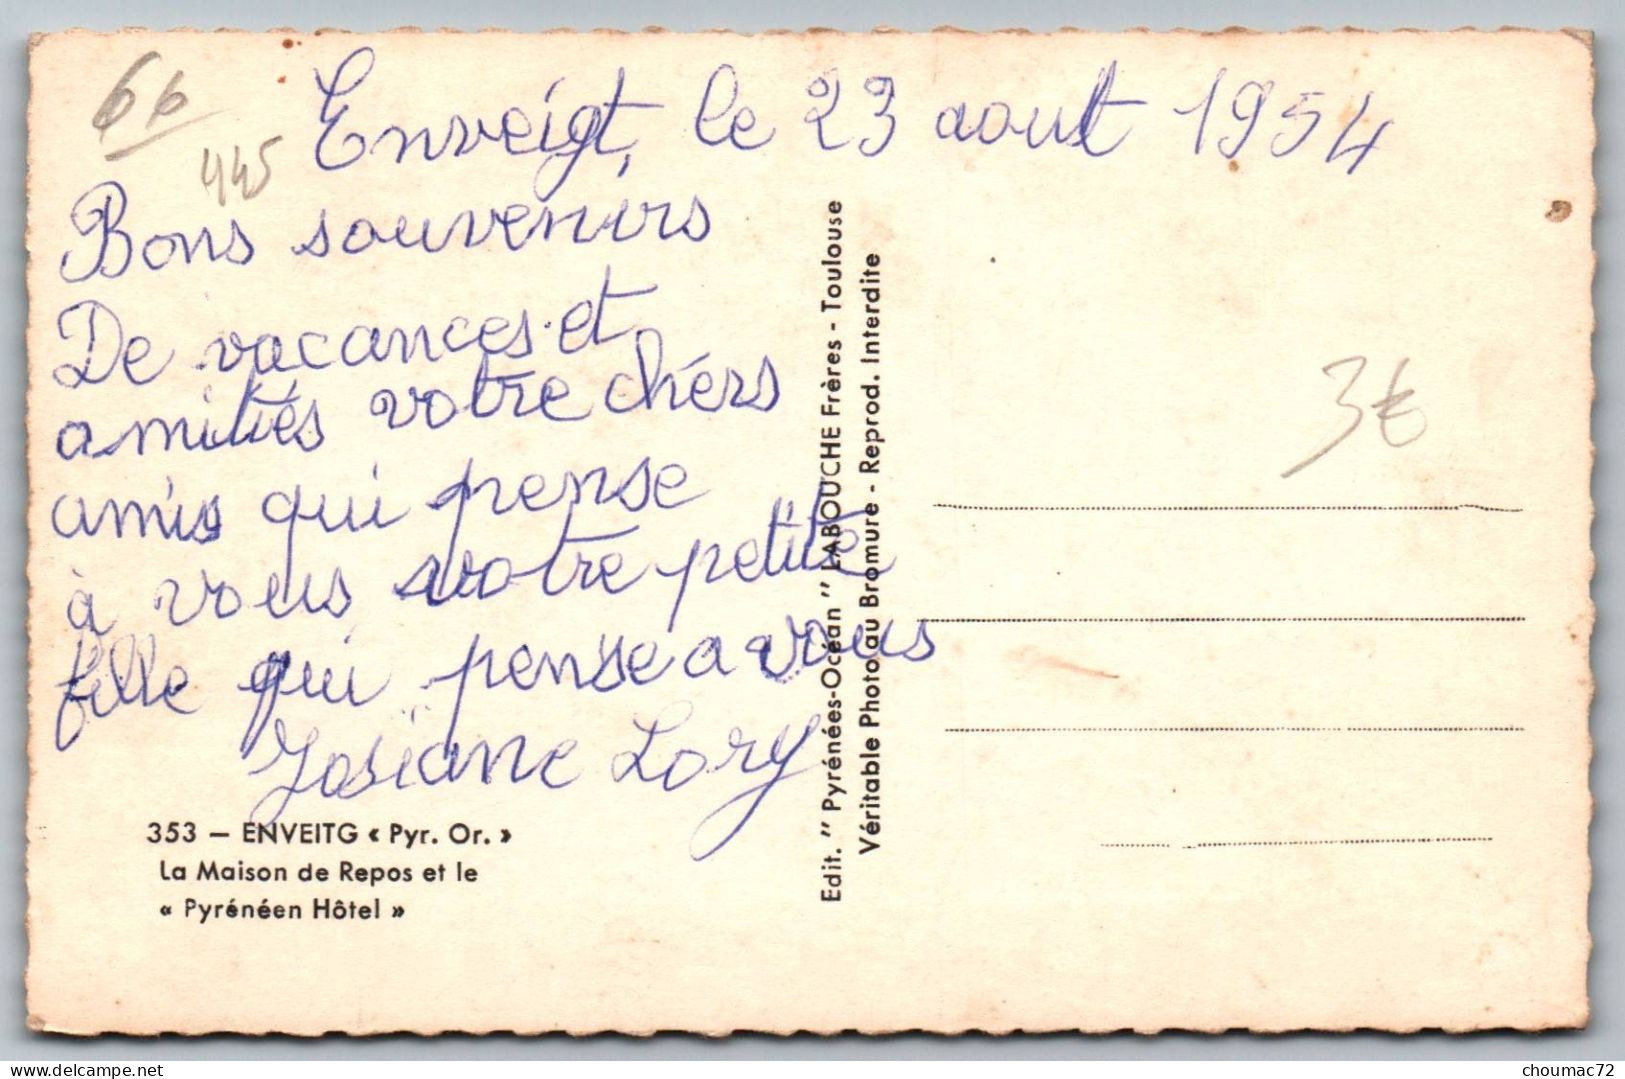 66
445
Enveigt, le 23 aout 1954
Bons souvenirs
De vacances et
amitiés votre chérs
amis qui pense
à vous votre petite
fille qui pense a vous
Josiane Lory
353 — ENVEITG « Pyr. Or. »
La Maison de Repos et le
« Pyrénéen Hôtel »
Edit. " Pyrénées-Océan " LABOUCHE Frères - Toulouse
Véritable Photo au Bromure - Reprod. Interdite
3€
choumac72